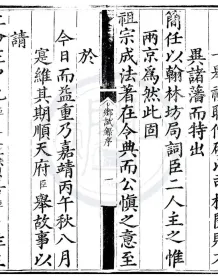 異諸藩而特出
簡任以翰林坊局詞臣二人主之惟
兩京為然此固
祖宗成法著在令典而公慎之意至
鄉試錄序 一
於
今日而益重乃嘉靖丙午秋八月
寔維其期順天府臣舉故事以
請